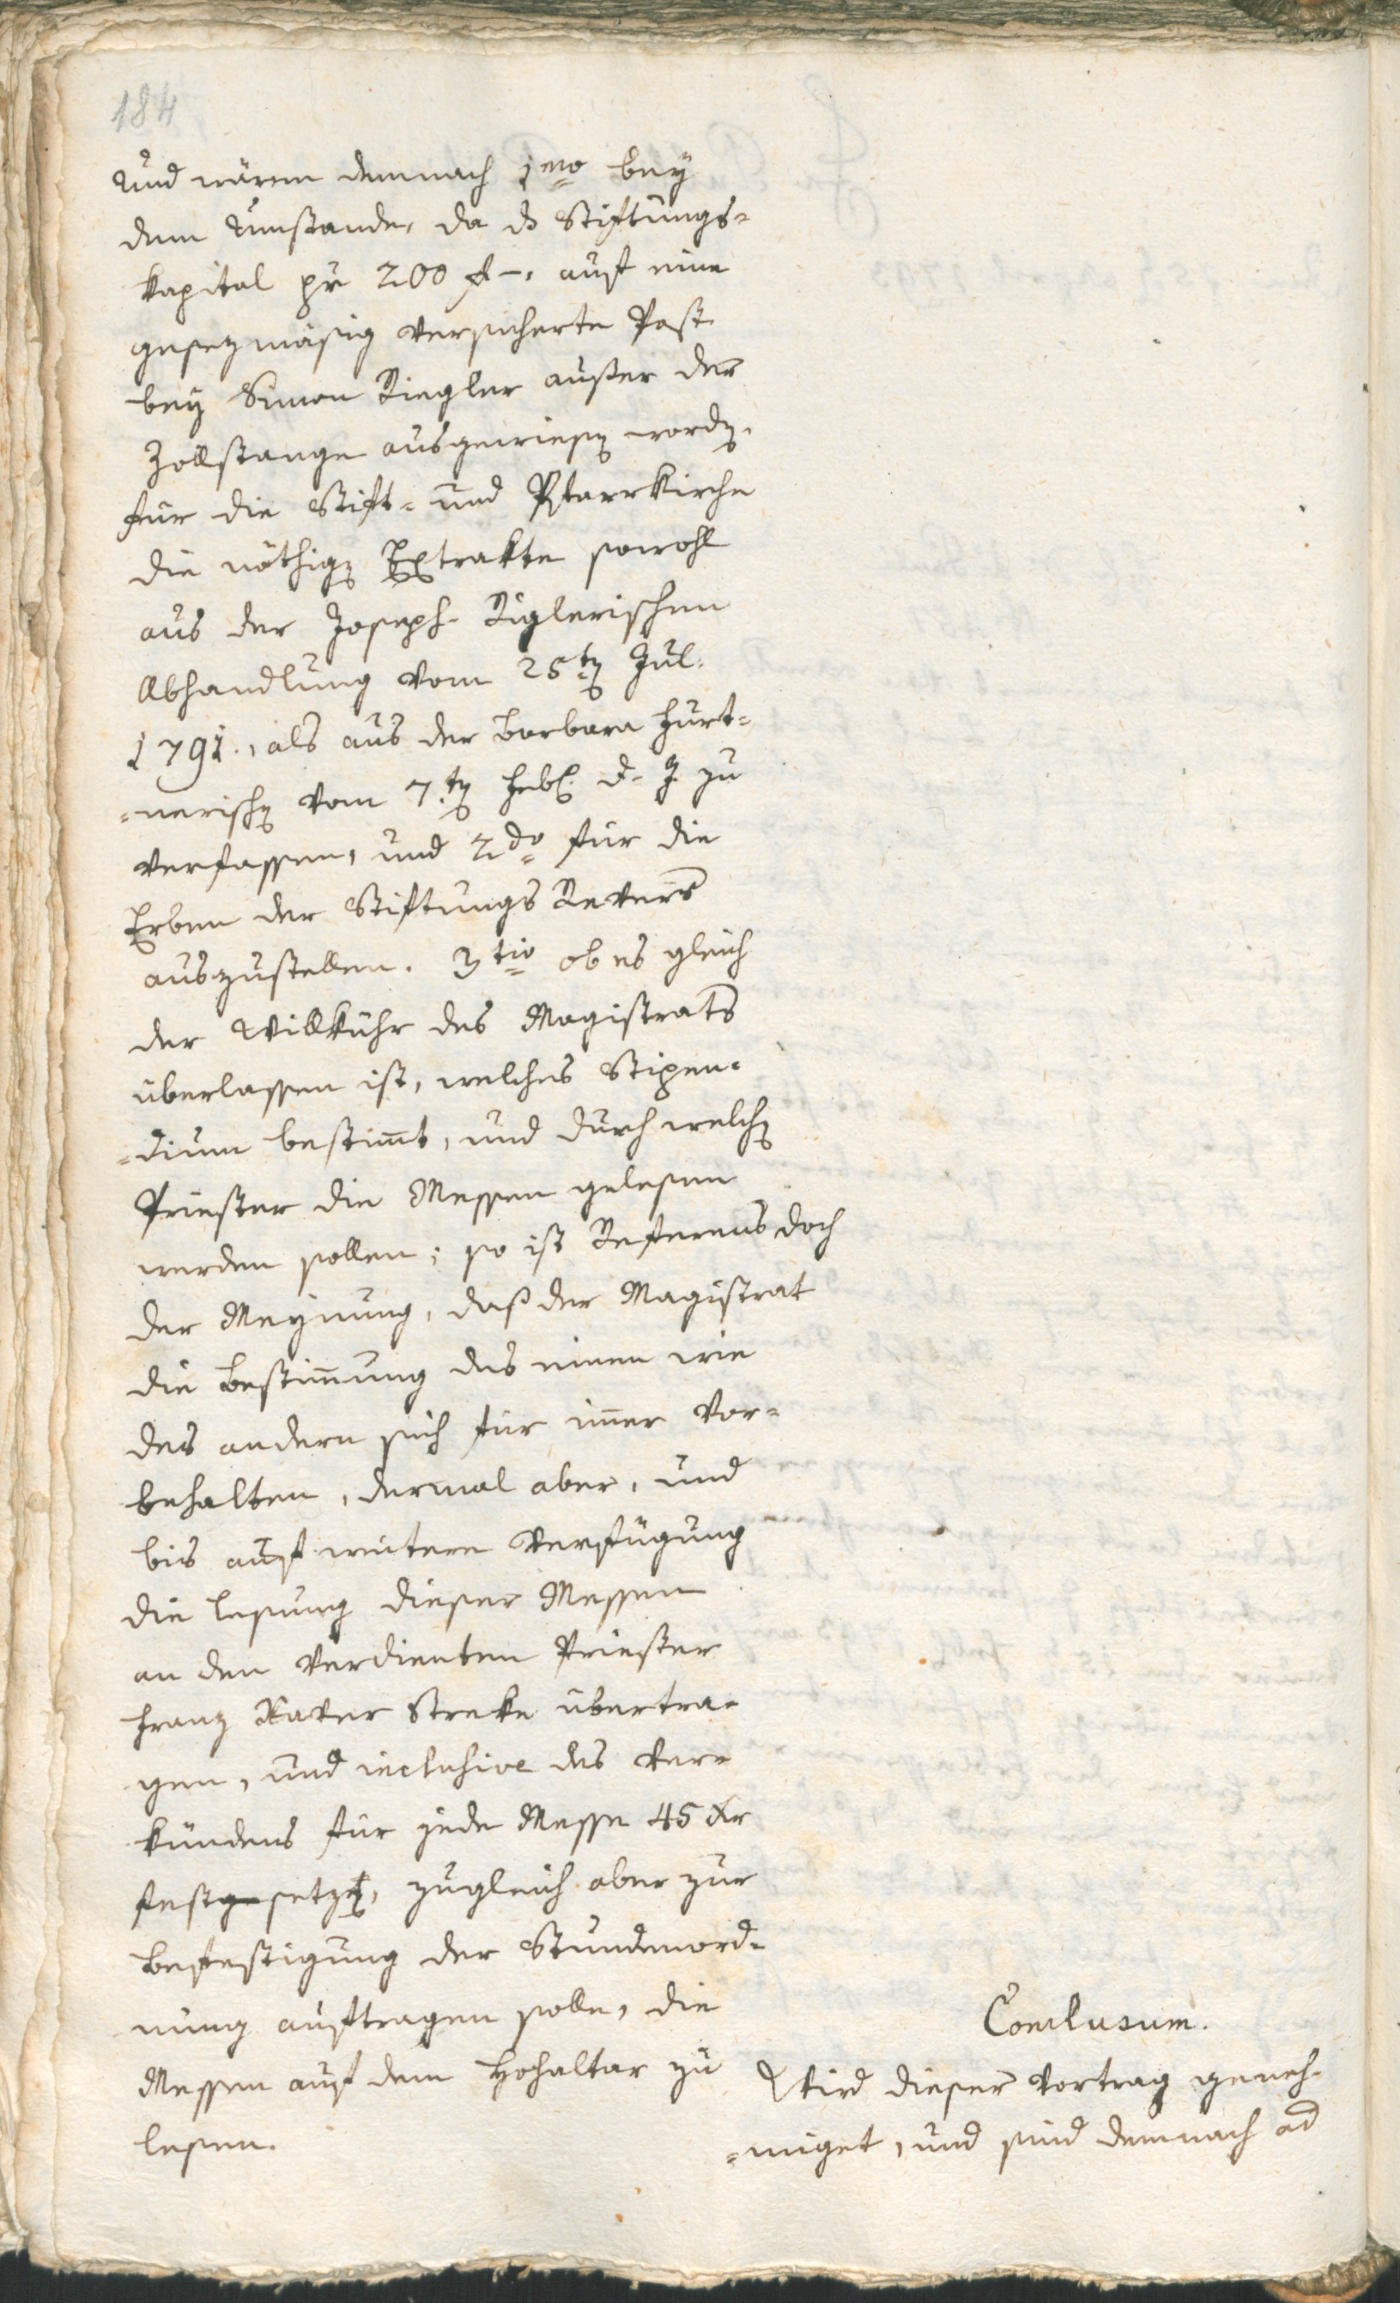 184
Und wären demnach 1mo bey
dem Umstande, da ds Stiftungs-
kapital pr 200 f –, auf eine
gesezmäsig versicherte Post
bey Simon Riegler außer der
Zollstange ausgewiesen worden,
für die Stift- und Pfarrkirche
die nöthigen Extrakte sowohl
aus der Joseph Riglerischen
Abhandlung vom 25ten Jul.
1791., als aus der Barbara Hurt-
-nerischen vom 7.ten Febr. d. J. zu
verfassen, und 2do für die
Erben der Stiftungs Revers
auszustellen. 3tio ob es gleich
der Willkühr des Magistrats
überlassen ist, welches Stipen-
-dium bestimmt, und durch welchen
Priester die Messen gelesen
werden sollen; so ist Referens doch
der Meynung, daß der Magistrat
die Bestimmung des einen wie
des andern sich für immer vor-
behalten, dermal aber, und
bis auf weitere Verfügung
die Lesung dieser Messen
an den verdienten Priester
Franz Xaver Streke übertra-
gen, und inclusive des Ver-
kündens für jede Messe 45 Xr
festgesetzt, zugleich aber zur
Befestigung der Stundenord-
nung auftragen solle, die
Messen auf dem Hohaltar zu
lesen.
Conclusum.
Wird dieser Vortrag geneh-
-miget, und sind demnach ad